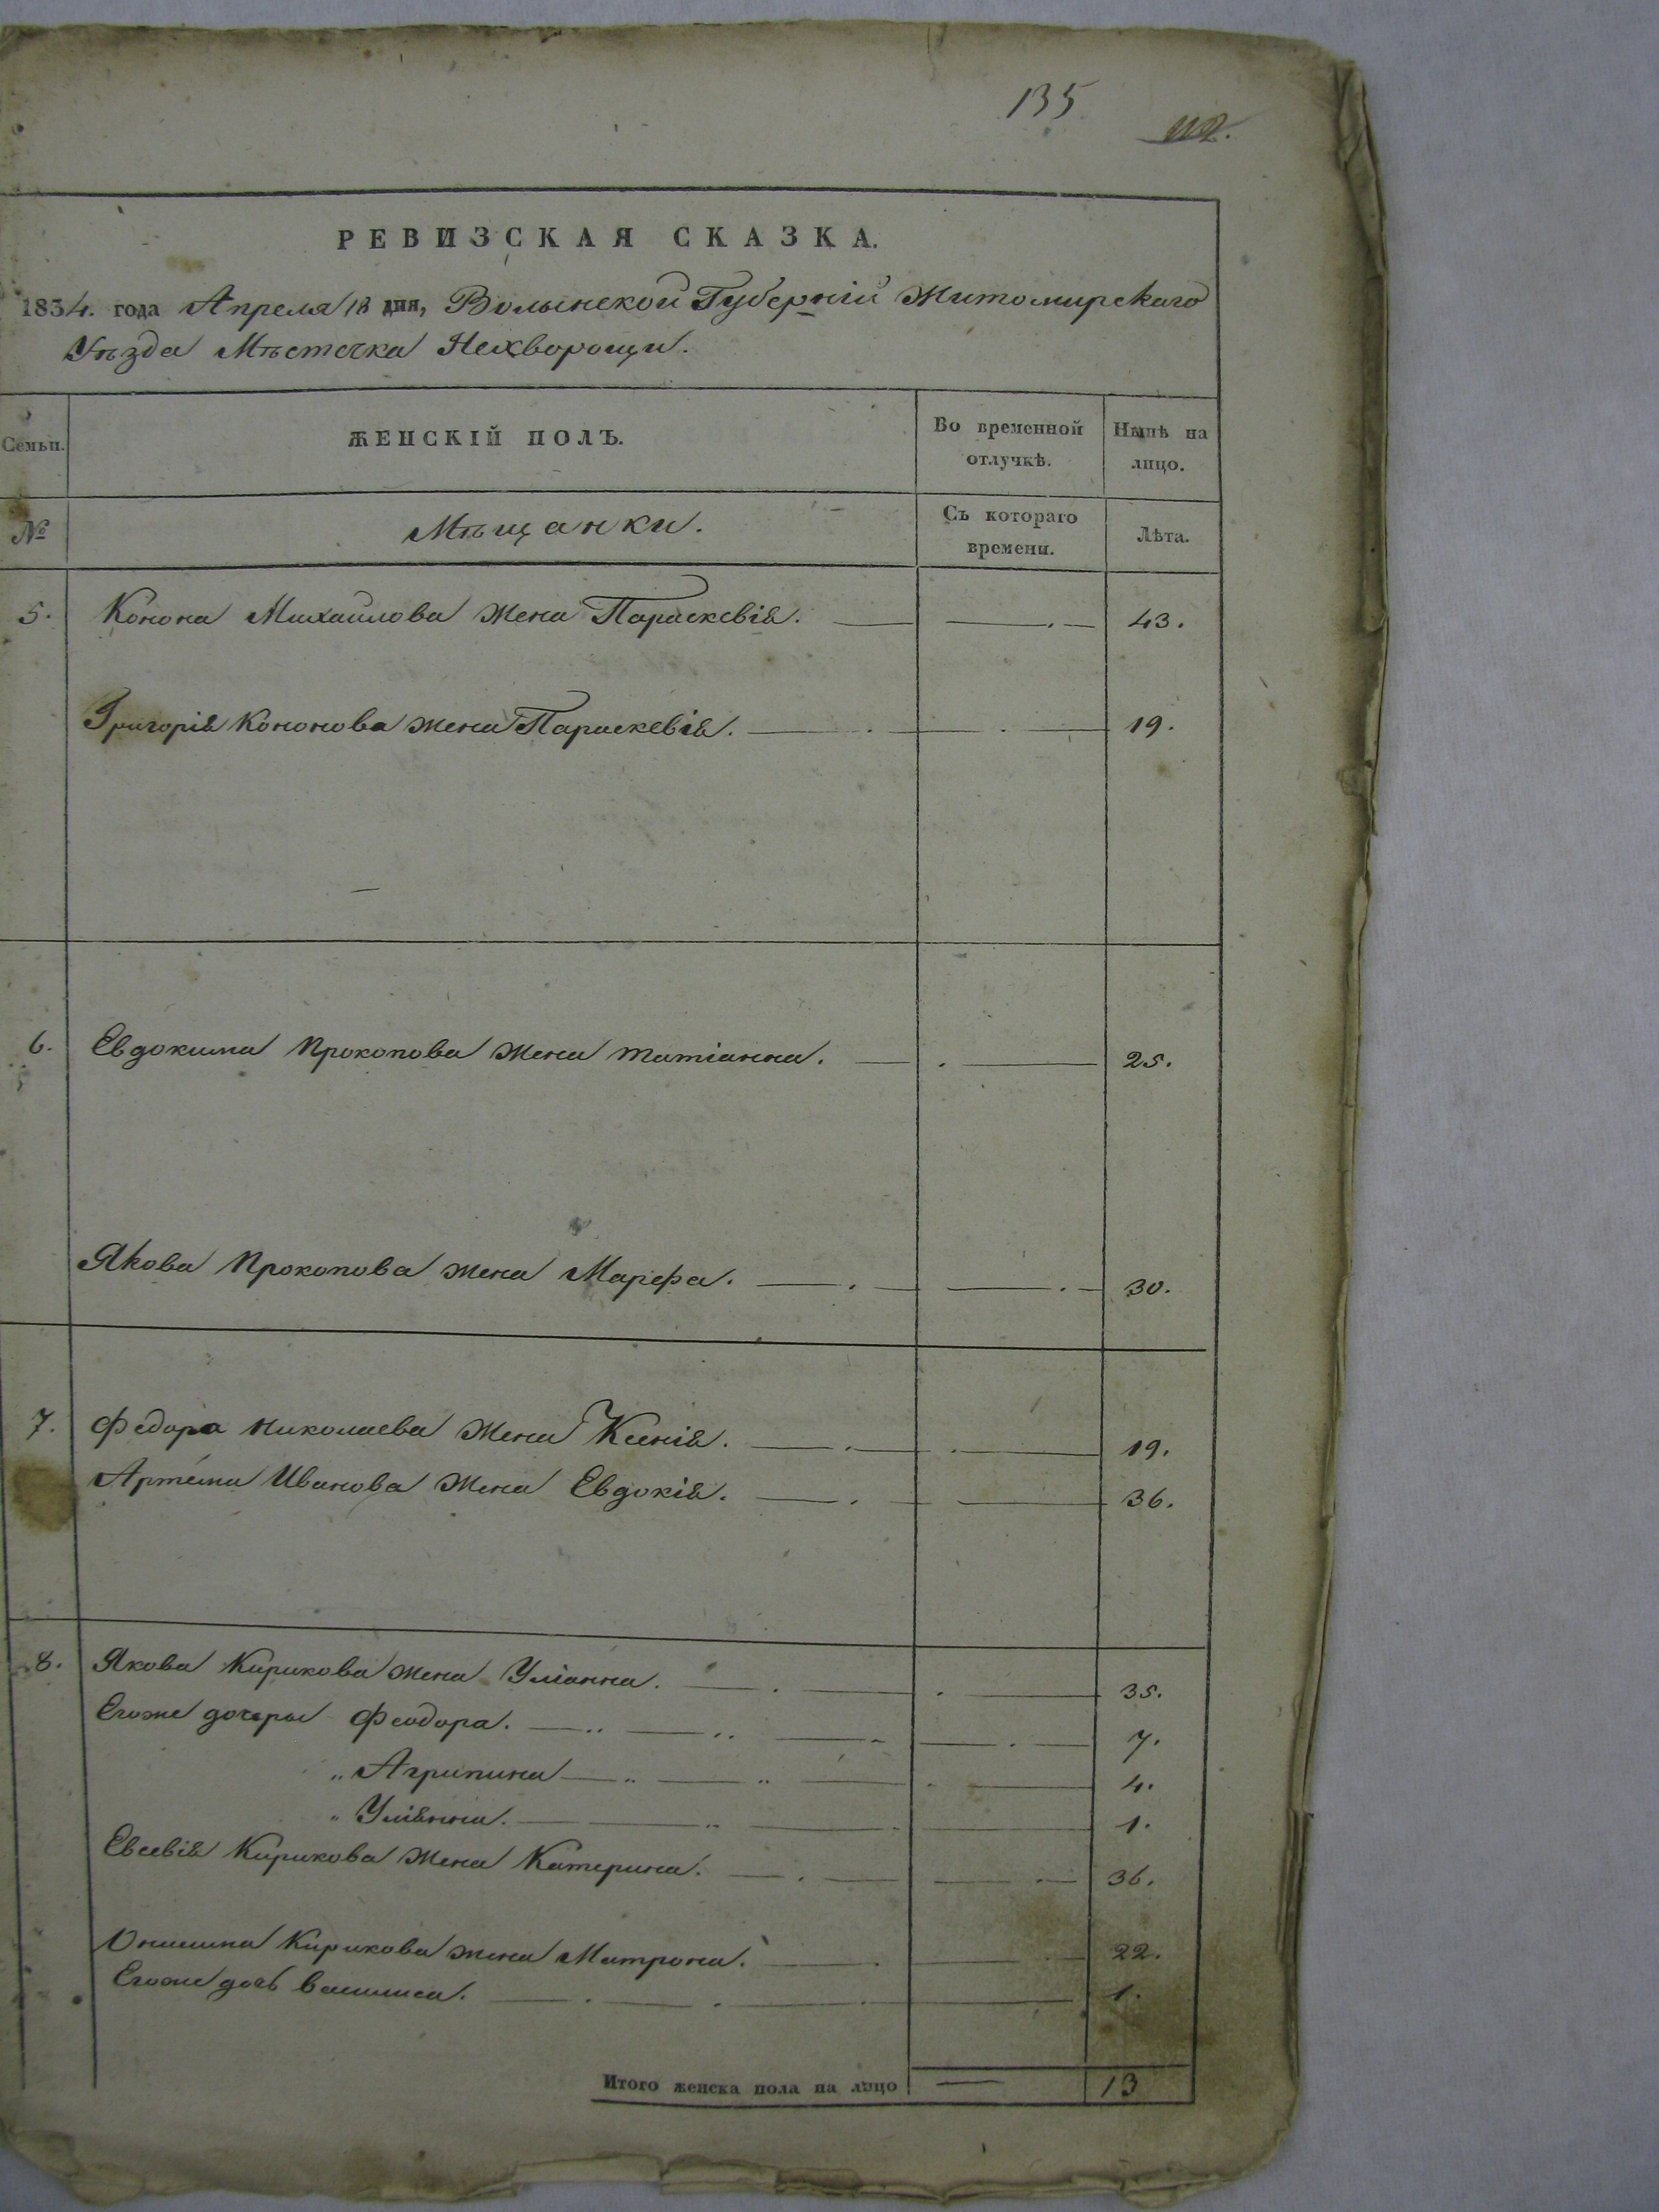 135
112.
РЕВИЗСКАЯ СКАЗКА.
1834. года Апреля 18 дня, Волынской Губерніи Житомирскаго
Уѣзда Мѣстечка Нехворощи.
Семьи.
ЖЕНСКІЙ ПОЛЪ.
Во временной отлучкѣ.
Нынѣ на лицо.
№
Мѣщанки.
Съ котораго времени.
Лѣта.
5. Конона Михайлова жена Параскевія. 43.
Григорія Кононова жена Параскевія. 19.
6. Евдокима Прокопова жена Татіанна. 25.
Якова Прокопова жена Марефа. 30.
7. Федора Николаева жена Ксенія. 19.
Артема Иванова жена Евдокія. 36.
8. Якова Кирикова жена Уліанна. 35.
Егоже дочеры Феодора. 7.
„ Агрипина 4.
„ Уліянна. 1.
Евсевія Кирикова жена Катерина. 36.
Онишка Кирикова жена Матрона. 22.
Егоже дочь Василиса. 1.
Итого женска пола на лицо — 13